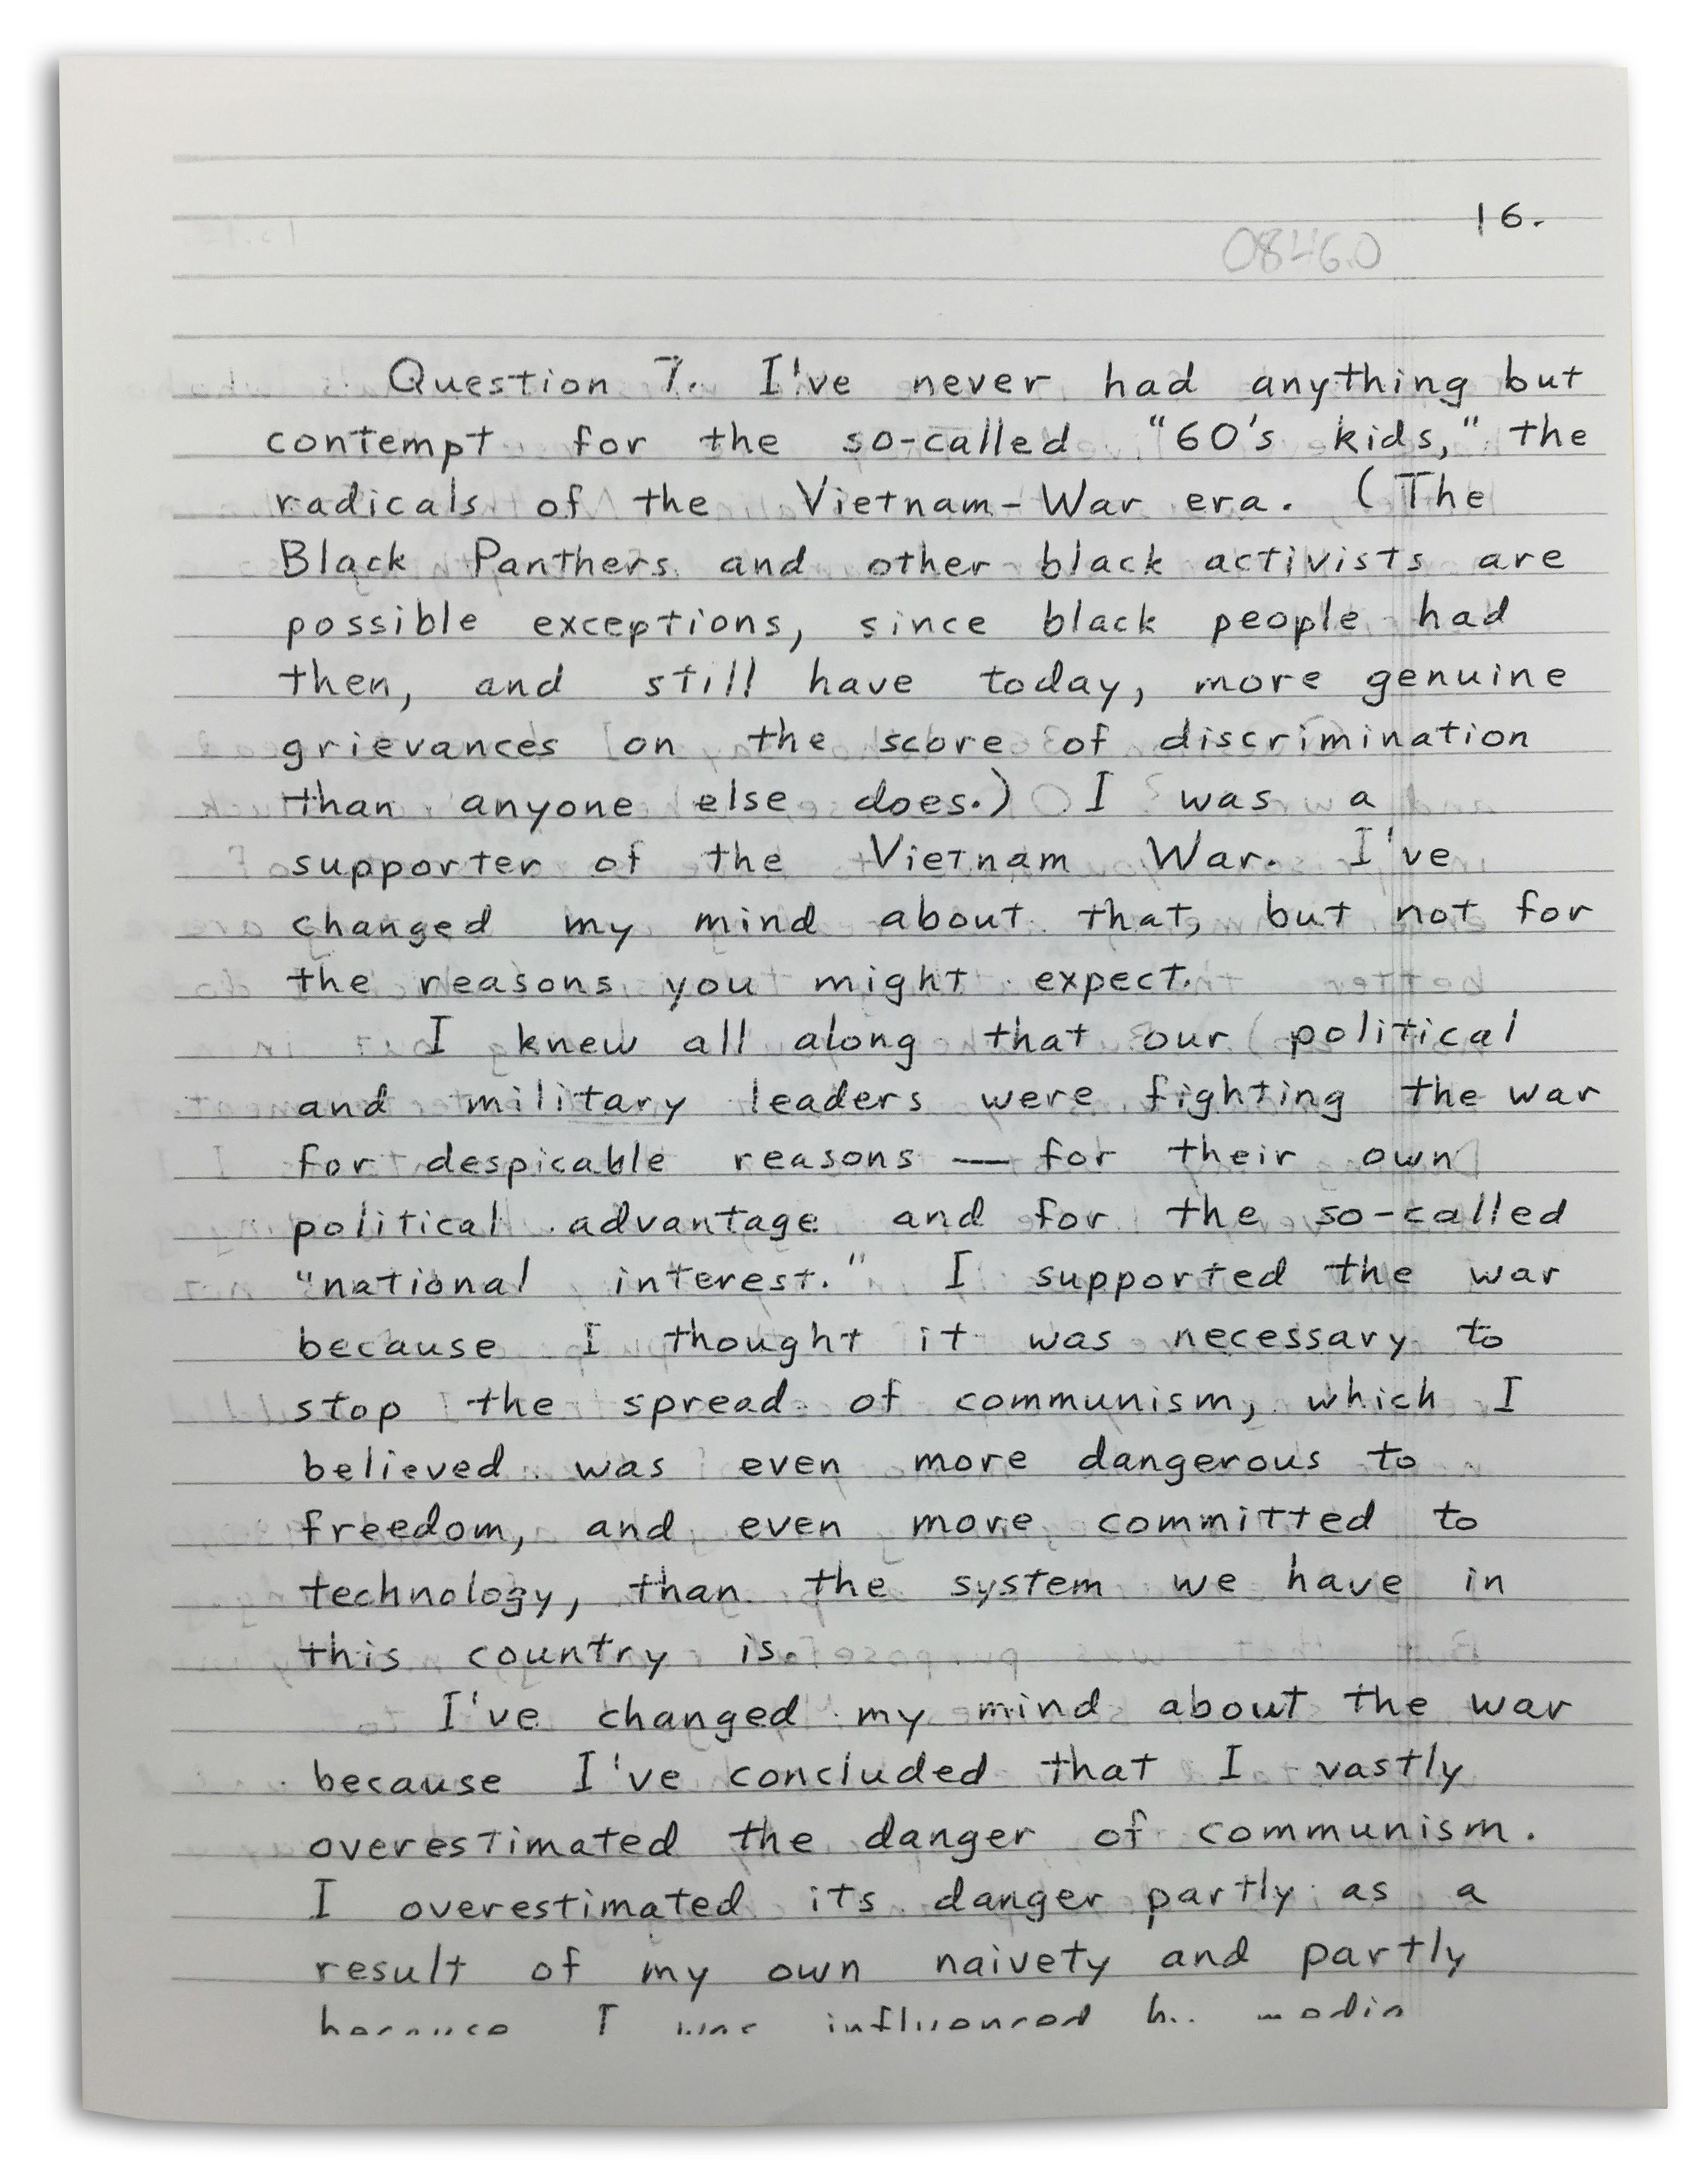 16.
0846.0
Question 7. I've never had anything but
contempt for the so-called "60's kids," the
radicals of the Vietnam-War era. (The
Black Panthers and other black activists are
possible exceptions, since black people had
then, and still have today, more genuine
grievances on the score of discrimination
than anyone else does.) I was a
supporter of the Vietnam War. I've
changed my mind about that, but not for
the reasons you might expect.
I knew all along that our political
and military leaders were fighting the war
for despicable reasons — for their own
political advantage and for the so-called
"national interest." I supported the war
because I thought it was necessary to
stop the spread of communism, which I
believed was even more dangerous to
freedom, and even more committed to
technology, than the system we have in
this country is.
I've changed my mind about the war
because I've concluded that I vastly
overestimated the danger of communism.
I overestimated its danger partly as a
result of my own naivety and partly
because I was influenced by media